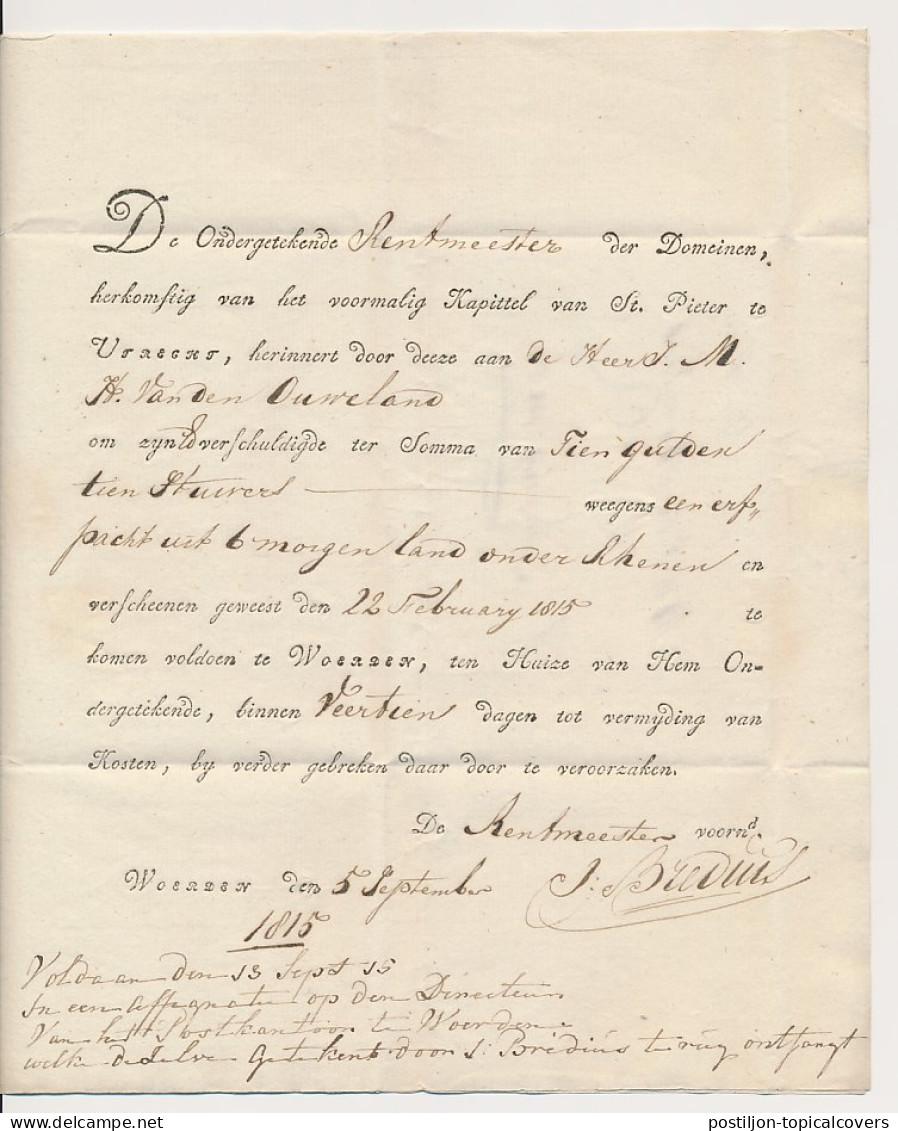 De Ondergetekende Rentmeester der Domeinen,
herkomstig van het voormalig Kapittel van St. Pieter te
Utrecht, herinnert door deeze aan de Heer J. M.
H. Van den Ouweland
om zyn Ed verschuldigde ter Somma van Tien gulden
tien Stuivers — weegens een erf„
pacht uit 6 morgen land onder Rhenen en
verscheenen geweest den 22 February 1815 te
komen voldoen te Woerden, ten Huize van Hem On-
dergetekende, binnen Veertien dagen tot vermyding van
Kosten, by verder gebreken daar door te veroorzaken.
De Rentmeester voornd.
Woerden den 5 September J: Bredius
1815
Voldaan den 13 Sept 15
In een assignatie op den Directeur
Van het Postkantoor te Woerden
welke deselve getekent door J: Bredius terug ontfangt
postiljon-topicalcovers